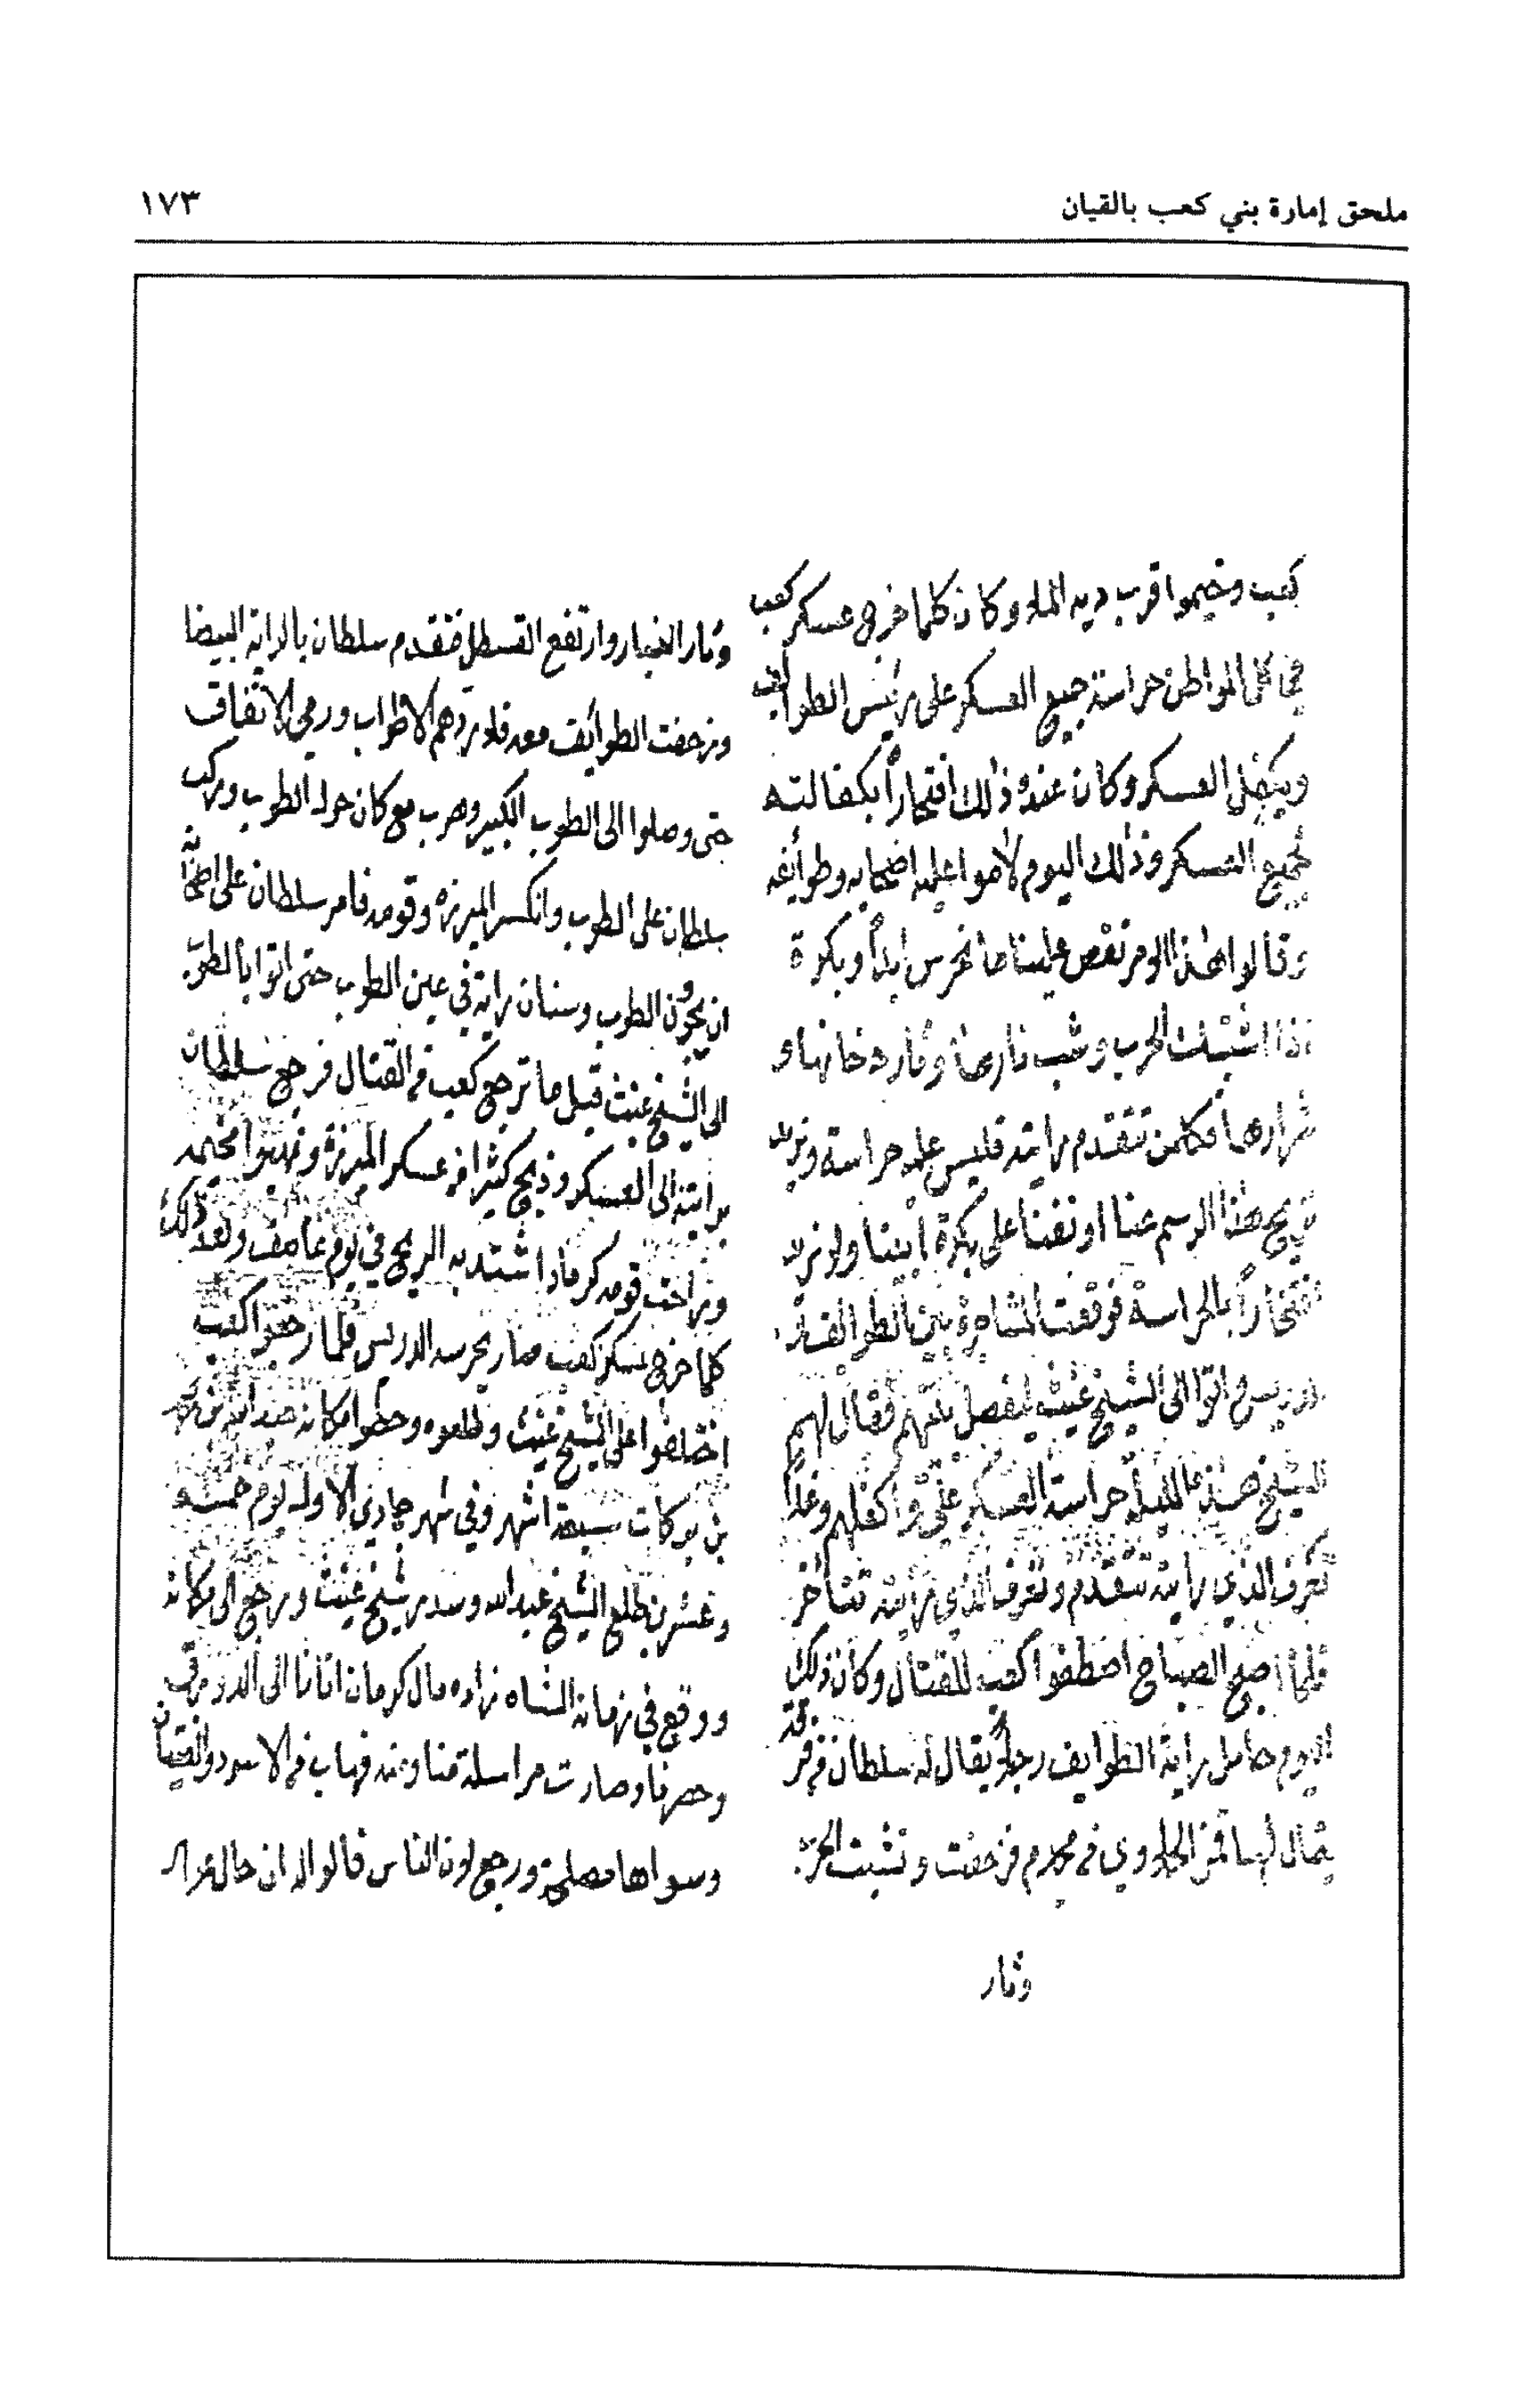 ملحق إمارة بني كعب بالقبان
١٧٣
كعب وخيموا قرب ديه الملا وكان كلما خرج عسكر كعب
في كل المواطن حراسة جميع العسكر على رئيس الطوايف
ويتكفل العسكر وكان عنده ذلك افتخاراً بكفالته
لجميع العسكر وذلك اليوم لاموا عليه اصحابه وطوايفه
وقالوا هذا نقص علينا ما نحرس ابداً وبكرة
اذا اشتبكت الحرب وشب نارها وثار دخانها و
شرارها فكلمن تتقدم رايته فليس عليه حراسة ونريد
هذا الرسم عنا اوقفنا على بكرة ابينا ولا نريد
افتخاراً بالحراسة فوقعت المشاجرة بين الطوائف
دريس واتوا الى الشيخ غيث ليفصل بينهم فقال لهم
الشيخ هذه الليلة حراسة العسكر علي وأكفلهم وغداً
نعرف الذي رايته تتقدم ونعرف الذي رايته تتأخر
فلما اصبح الصباح اصطفوا كعب للقتال وكان ذلك
اليوم حامل راية الطوايف رجلاً يقال له سلطان من فرقة
يقال لها من فزحفت ونشبت الحرب
وثار
وثار الغبار وارتفع القسطل فتقدم سلطان بالراية البيضا
وزحفت الطوايف معه فلا ردهم الاطواب ورمي الاتفاق
حتى وصلوا الى الطوب الكبير وهرب مع كان حول الطوب وركب
سلطان على الطوب وانكسر الميرزه وقومه فامر سلطان على اصحابه
ان يجرون الطوب وسنان راية في عين الطوب حتى اتوا بالطوب
الى الشيخ غيث قبل ما ترجع كعب من القتال فرجع سلطان
برايته الى العسكر وذبح كثيرا من عسكر الميرزه ونهبوا مخيمه
وراحت قومه كرماد اشتد به الريح في يوم عاصف وبعد ذلك
كلما خرج عسكر كعب صار يحرسه الدريس فلما رجعوا كعب
اختلفوا على الشيخ غيث وطلعوه وحطوا مكانه عبد الله بن
بن بركات سبعة اشهر وفي شهر جمادي الاول يوم خمسه
وعشرين طلع الشيخ عبد الله وسدر شيخ غيث ورجع الى مكانه
ووقع في زمانه الشاه زاده مال كرمان اتانا الى الدورق
وحصرنا وصارت مراسلة منا ومنه فهاب من الاسود والفتيان
وسواها مصلحة ورجع لون الناس قالوا له ان حال